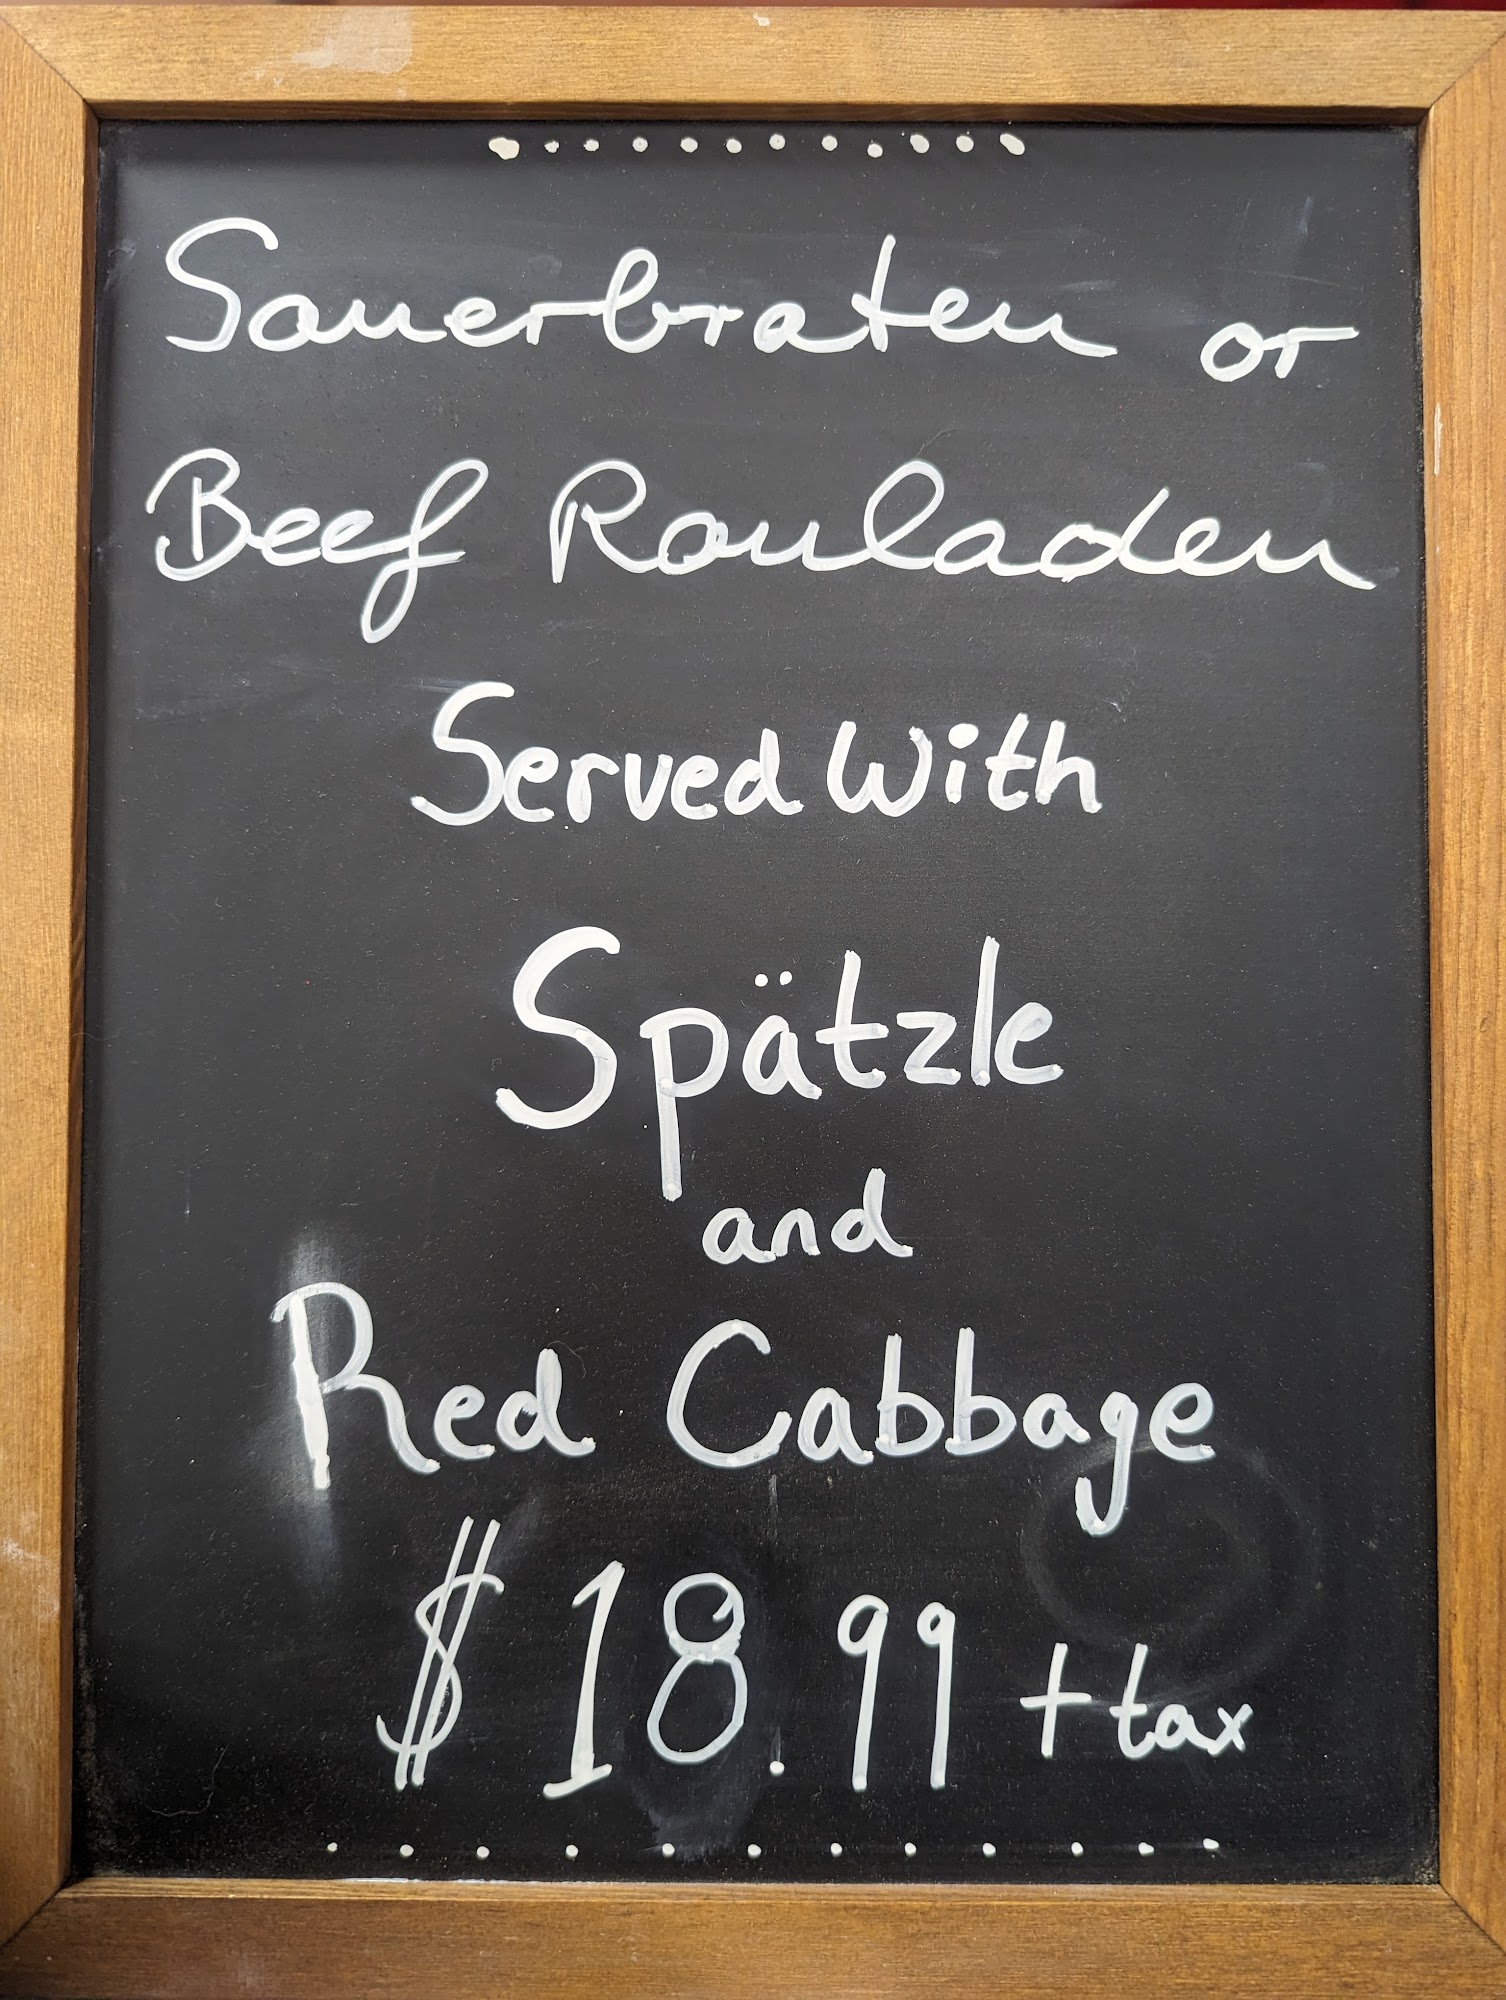 Sauerbraten or
Beef Rouladen
Served With
Spätzle
and
Red Cabbage
$18.99 + tax